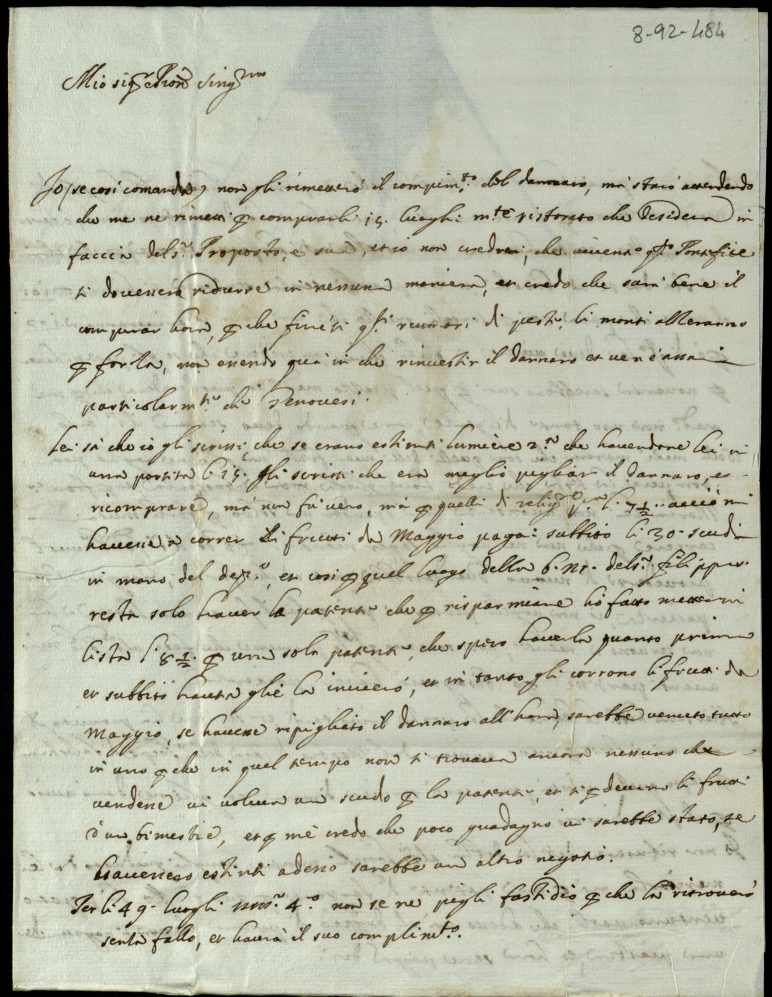 8-92-484
Mio sig.r e Pron Sing.mo
Jo se così comanda, non gli rimetterò il compim.to del dannaro, mà starò attendendo
che me ne rimetti p comprarli 15. luoghi m.te ristorato che desidera in
faccia del s.r Proposto, e sua, et io non crederei, che vivente q.to Pontefice
si dovessero ridurre in nessuna maniera, et credo che sarà bene il
comprar hora p che finiti q.ti rumori di peste, li monti alzeranno
p forza, non essendo quà in che rinvestir il dannaro et ve n'è assai
particolarm.te di Genovesi.
Lei sà che io gli scrissi, che se erano estinti lumiere 2.a che havendone lei in
una partita l. 15. gli scrissi che era meglio pigliar il dannaro, et
ricomprare, mà non fù vero, mà p quelli di relig.ne l. 7½ acciò
havesse a correr li frutti da Maggio pagai subbito li 30. scudi
in mano del dep.o, et così p quel luogo della del s.r
resta solo haver la patente che p risparmiare hò fatto mettere in
lista l. 8½ p una sola patente, che spero haverla quanto prima
et subbito havuta glie la invierò, et in tanto gli corrono li frutti da
Maggio, se havesse ripigliato il dannaro all'hora, sarebbe venuto tutto
in uno p che in quel tempo non si trovava ancora nessuno che
vendesse vi voleva un scudo p la patente, et si perdevano li frutti
d'un bimestre, et p mè credo che poco guadagno vi sarebbe stato, se
havessero estinti adesso sarebbe un altro negotio.
Per li 49. luoghi 4.o non se ne pigli fastidio p che la ritroverò
senza fallo, et haverà il suo complim.to.